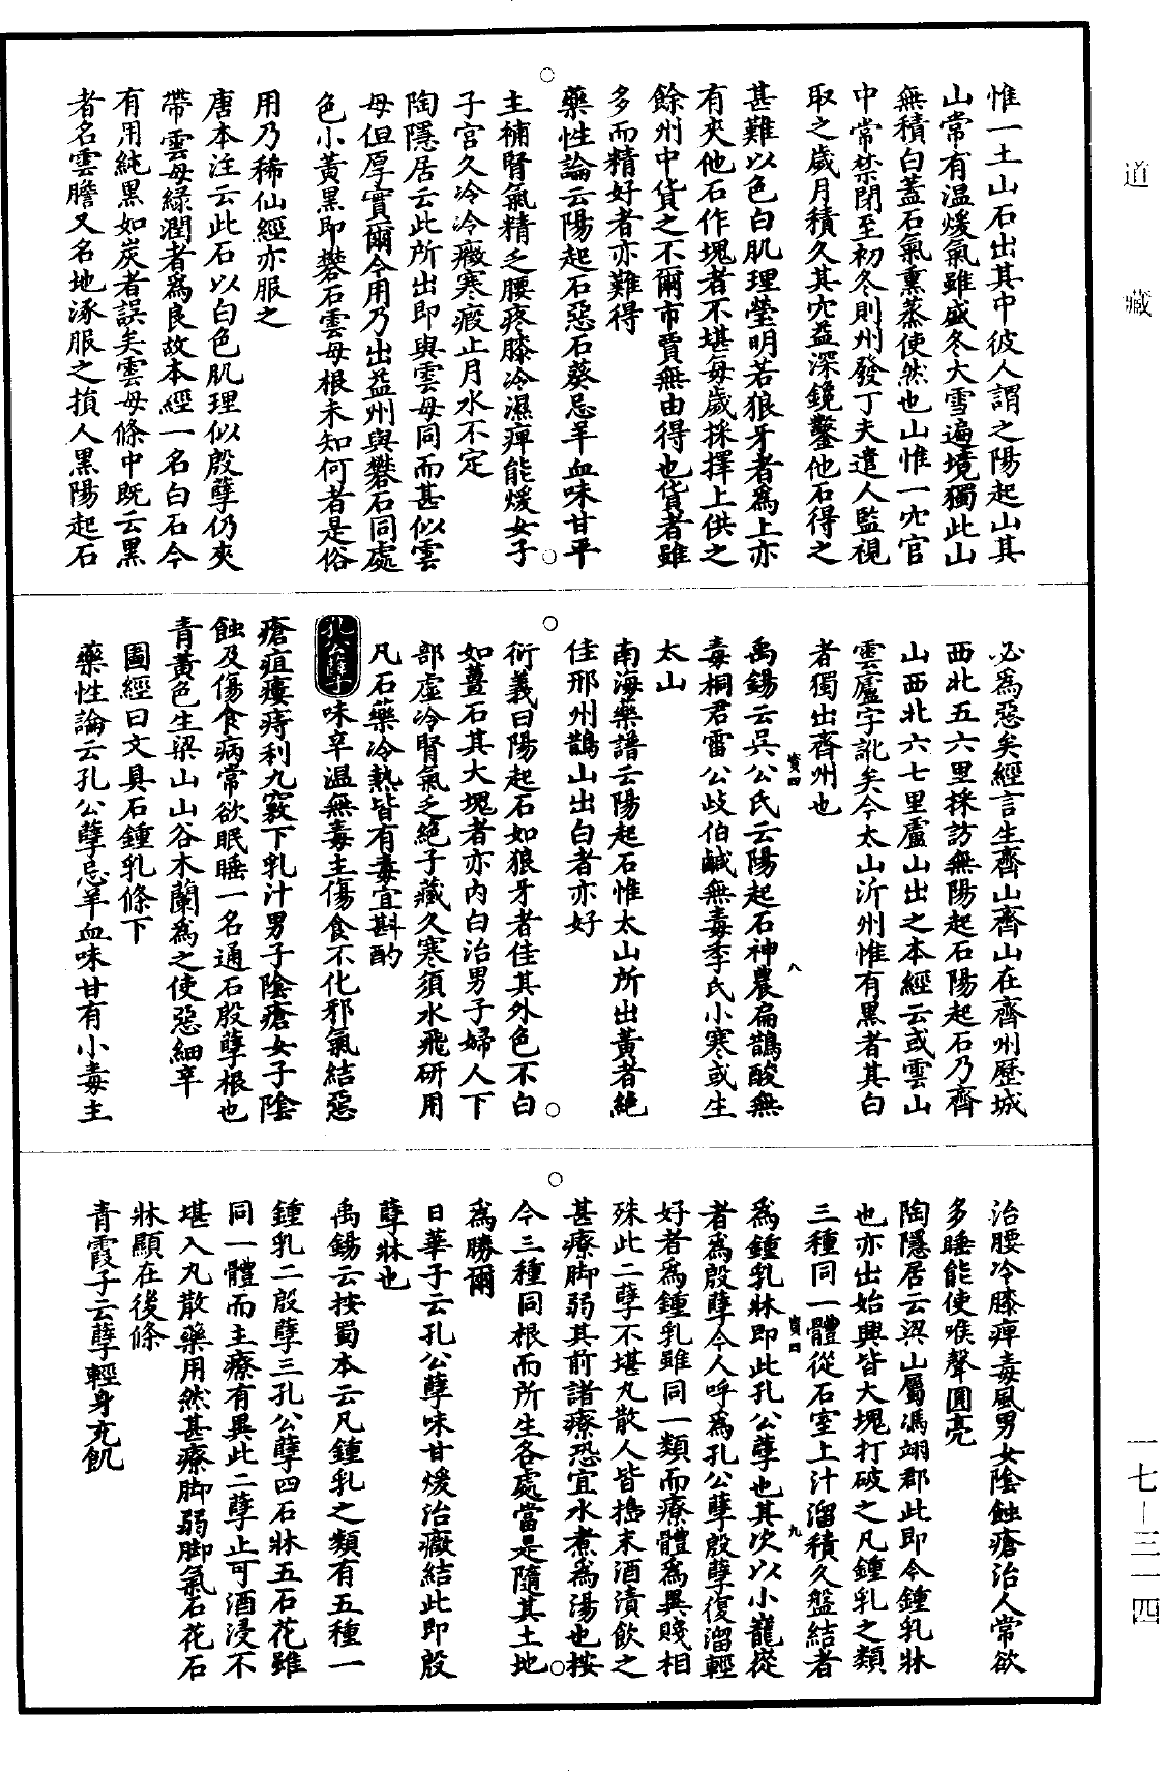 道藏
惟一土山石出其中彼人謂之陽起山其
山常有温煖氣雖盛冬大雪遍境獨此山
無積白蓋石氣熏蒸使然也山惟一穴官
中常禁閉至初冬則州發丁夫遣人監視
取之歲月積久其穴益深鑱鑿他石得之
甚難以色白肌理瑩明若狼牙者爲上亦
有夾他石作塊者不堪每歲採擇上供之
餘州中貨之不爾市賈無由得也貨者雖
多而精好者亦難得
藥性論云陽起石惡石葵忌羊血味甘平
主補腎氣精乏腰疼膝冷濕痺能煖女子
子宮久冷冷癥寒瘕止月水不定
陶隱居云此所出即與雲母同而甚似雲
母但厚實爾今用乃出益州與礬石同處
色小黃黑即礬石雲母根未知何者是俗
用乃稀仙經亦服之
唐本注云此石以白色肌理似殷孽仍夾
帶雲母綠潤者爲良故本經一名白石今
有用純黑如炭者誤矣雲母條中既云黑
者名雲膽又名地涿服之損人黑陽起石
必爲惡矣經言生齊山齊山在齊州歷城
西北五六里採訪無陽起石陽起石乃齊
山西北六七里盧山出之本經云或雲山
雲盧字訛矣今太山沂州惟有黑者其白
者獨出齊州也
賓四
八
禹錫云吳公氏云陽起石神農扁鵲酸無
毒桐君雷公歧伯鹹無毒季氏小寒或生
太山
南海藥譜云陽起石惟太山所出黃者絕
佳邢州鵲山出白者亦好
衍義曰陽起石如狼牙者佳其外色不白
如薑石其大塊者亦內白治男子婦人下
部虛冷腎氣乏絕子藏久寒須水飛研用
凡石藥冷熱皆有毒宜斟酌
孔公孽味辛温無毒主傷食不化邪氣結惡
瘡疽瘻痔利九竅下乳汁男子陰瘡女子陰
蝕及傷食病常欲眠睡一名通石殷孽根也
青黃色生梁山山谷木蘭爲之使惡細辛
圖經曰文具石鍾乳條下
藥性論云孔公孽忌羊血味甘有小毒主
治腰冷膝痺毒風男女陰蝕瘡治人常欲
多睡能使喉聲圓亮
陶隱居云梁山屬馮翊郡此即今鍾乳牀
也亦出始興皆大塊打破之凡鍾乳之類
三種同一體從石室上汁溜積久盤結者
賓四
九
爲鍾乳牀即此孔公孽也其次以小巃嵷
者爲殷孽今人呼爲孔公孽殷孽復溜輕
好者爲鍾乳雖同一類而療體爲異賤相
殊此二孽不堪丸散人皆搗末酒漬飲之
甚療脚弱其前諸療恐宜水煮爲湯也按
今三種同根而所生各處當是隨其土地
爲勝爾
日華子云孔公孽味甘煖治癥結此即殷
孽牀也
禹錫云按蜀本云凡鍾乳之類有五種一
鍾乳二殷孽三孔公孽四石牀五石花雖
同一體而主療有異此二孽止可酒浸不
堪入丸散藥用然甚療脚弱脚氣石花石
牀顯在後條
青霞子云孽輕身充飢
一七—三一四